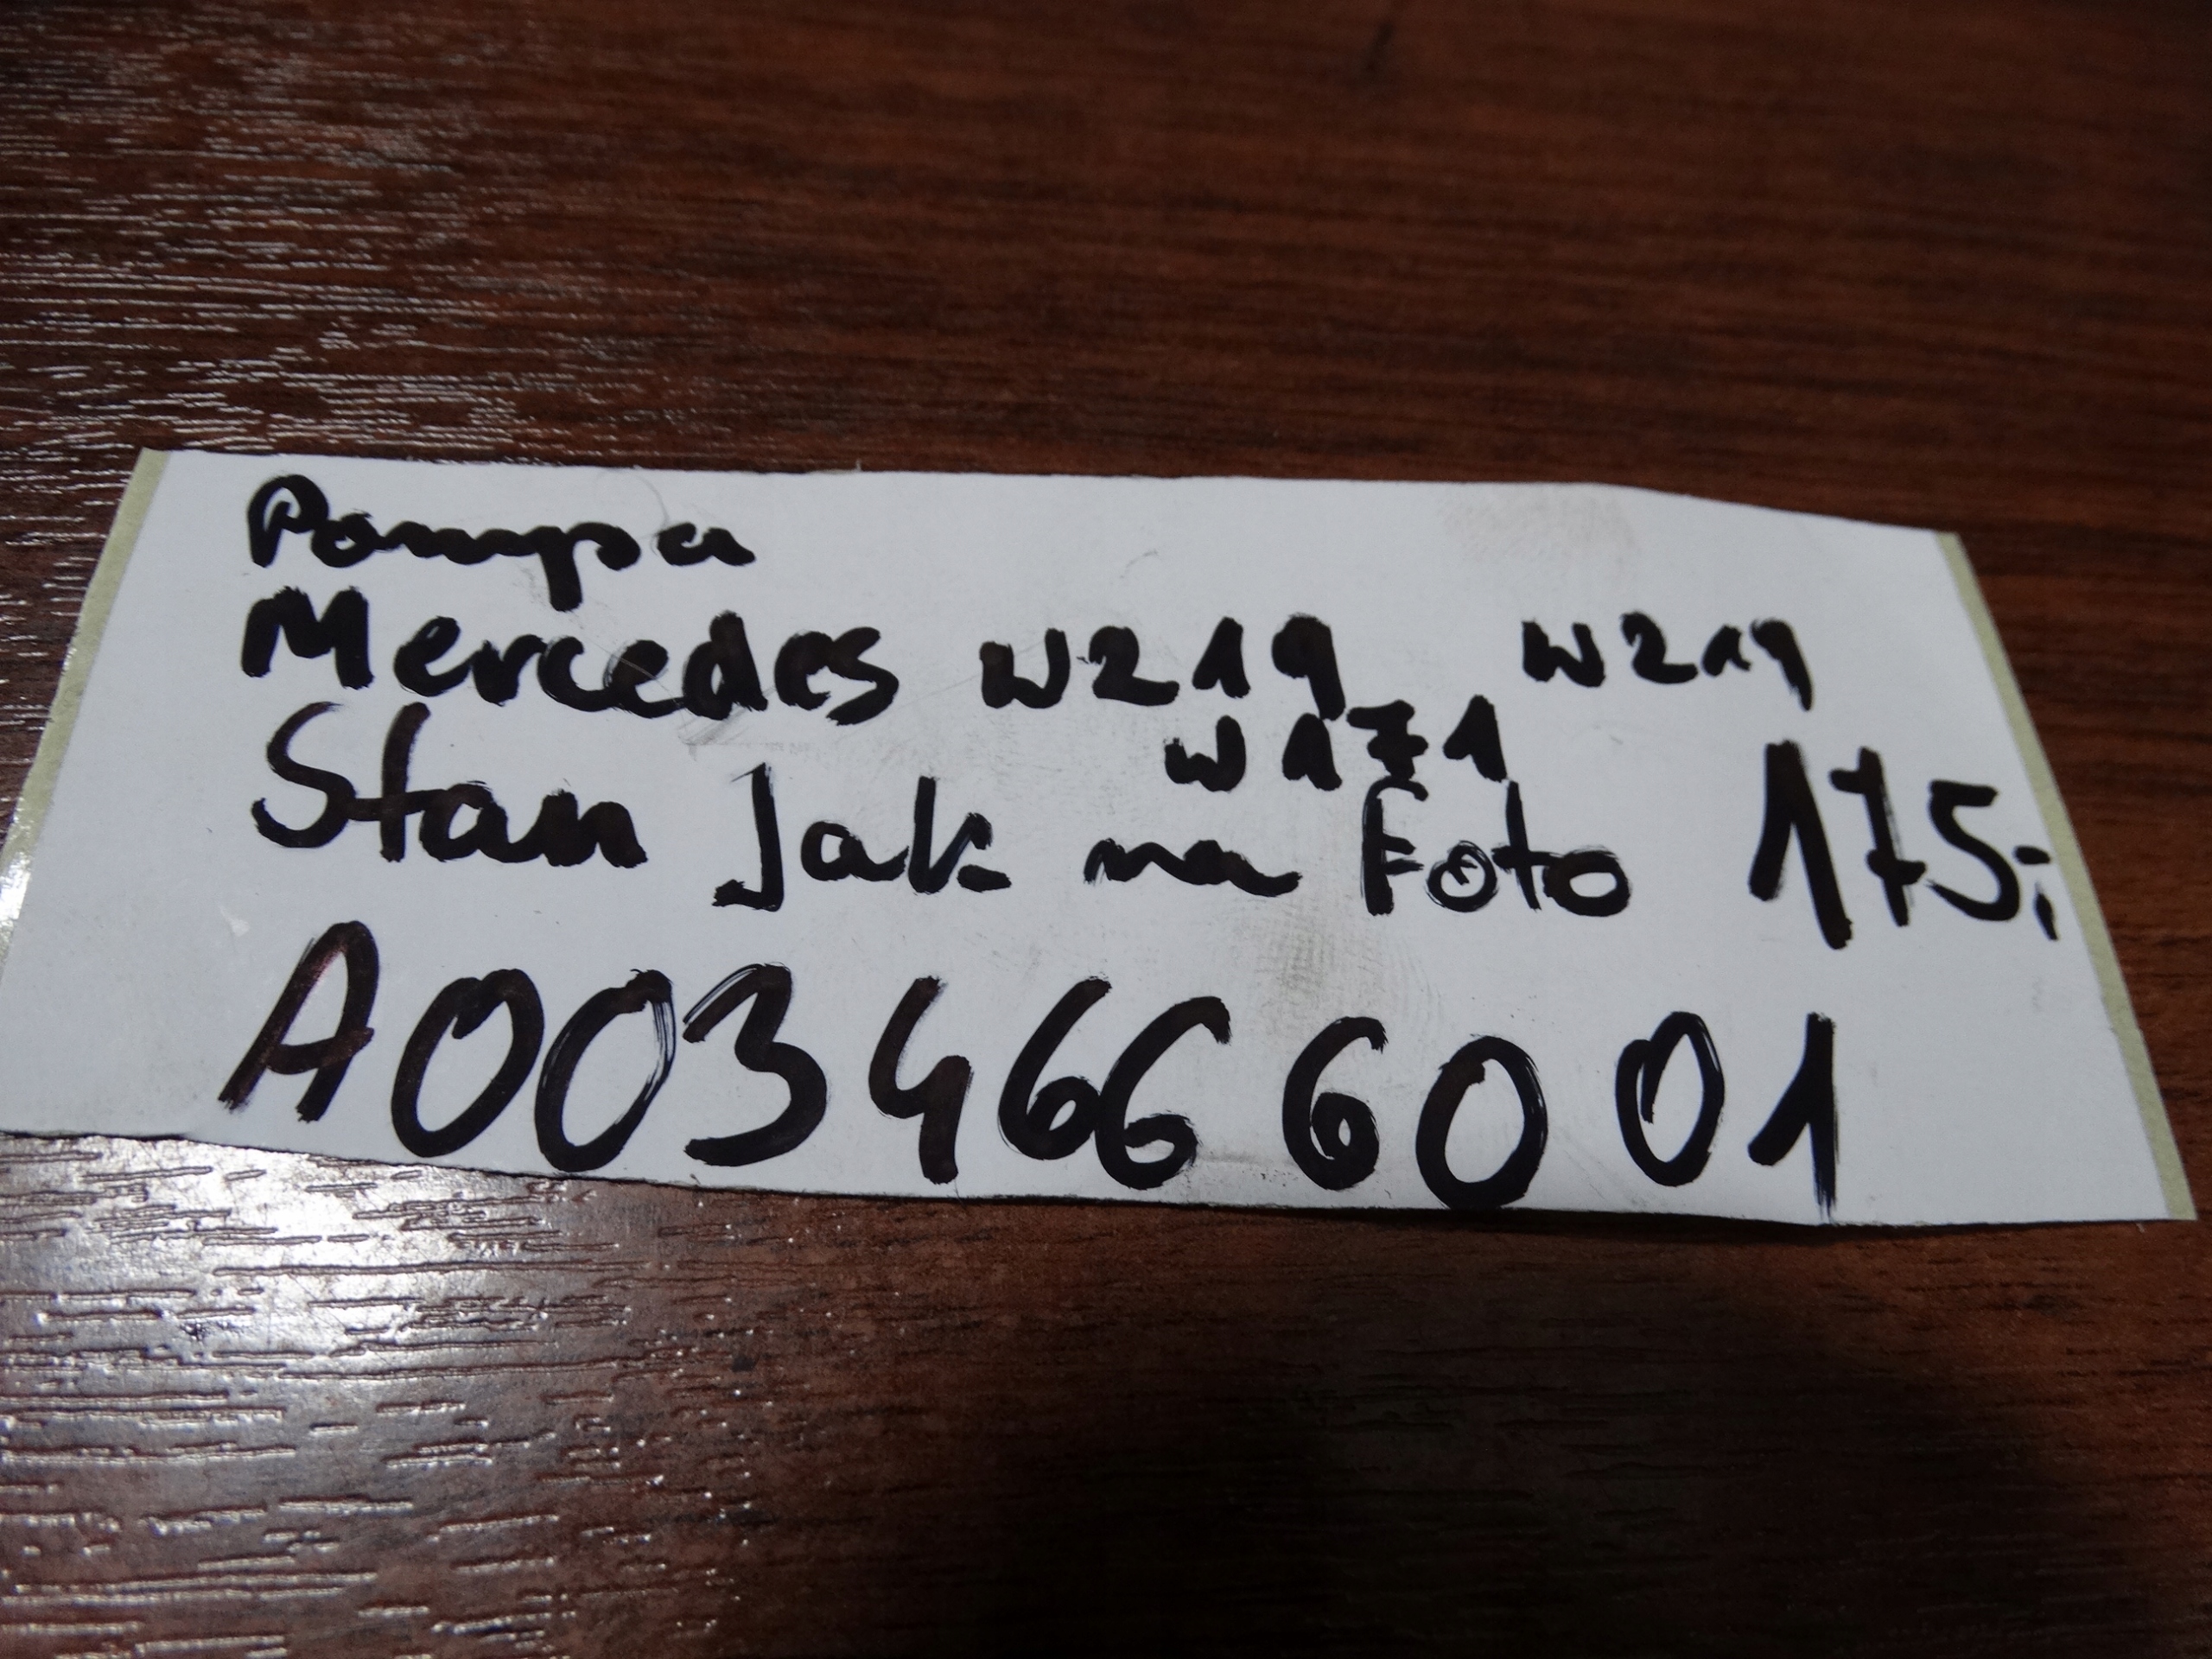 Pompa
Mercedes W219 W219
W171
Stan Jak na Foto 175,-
A003466 60 01